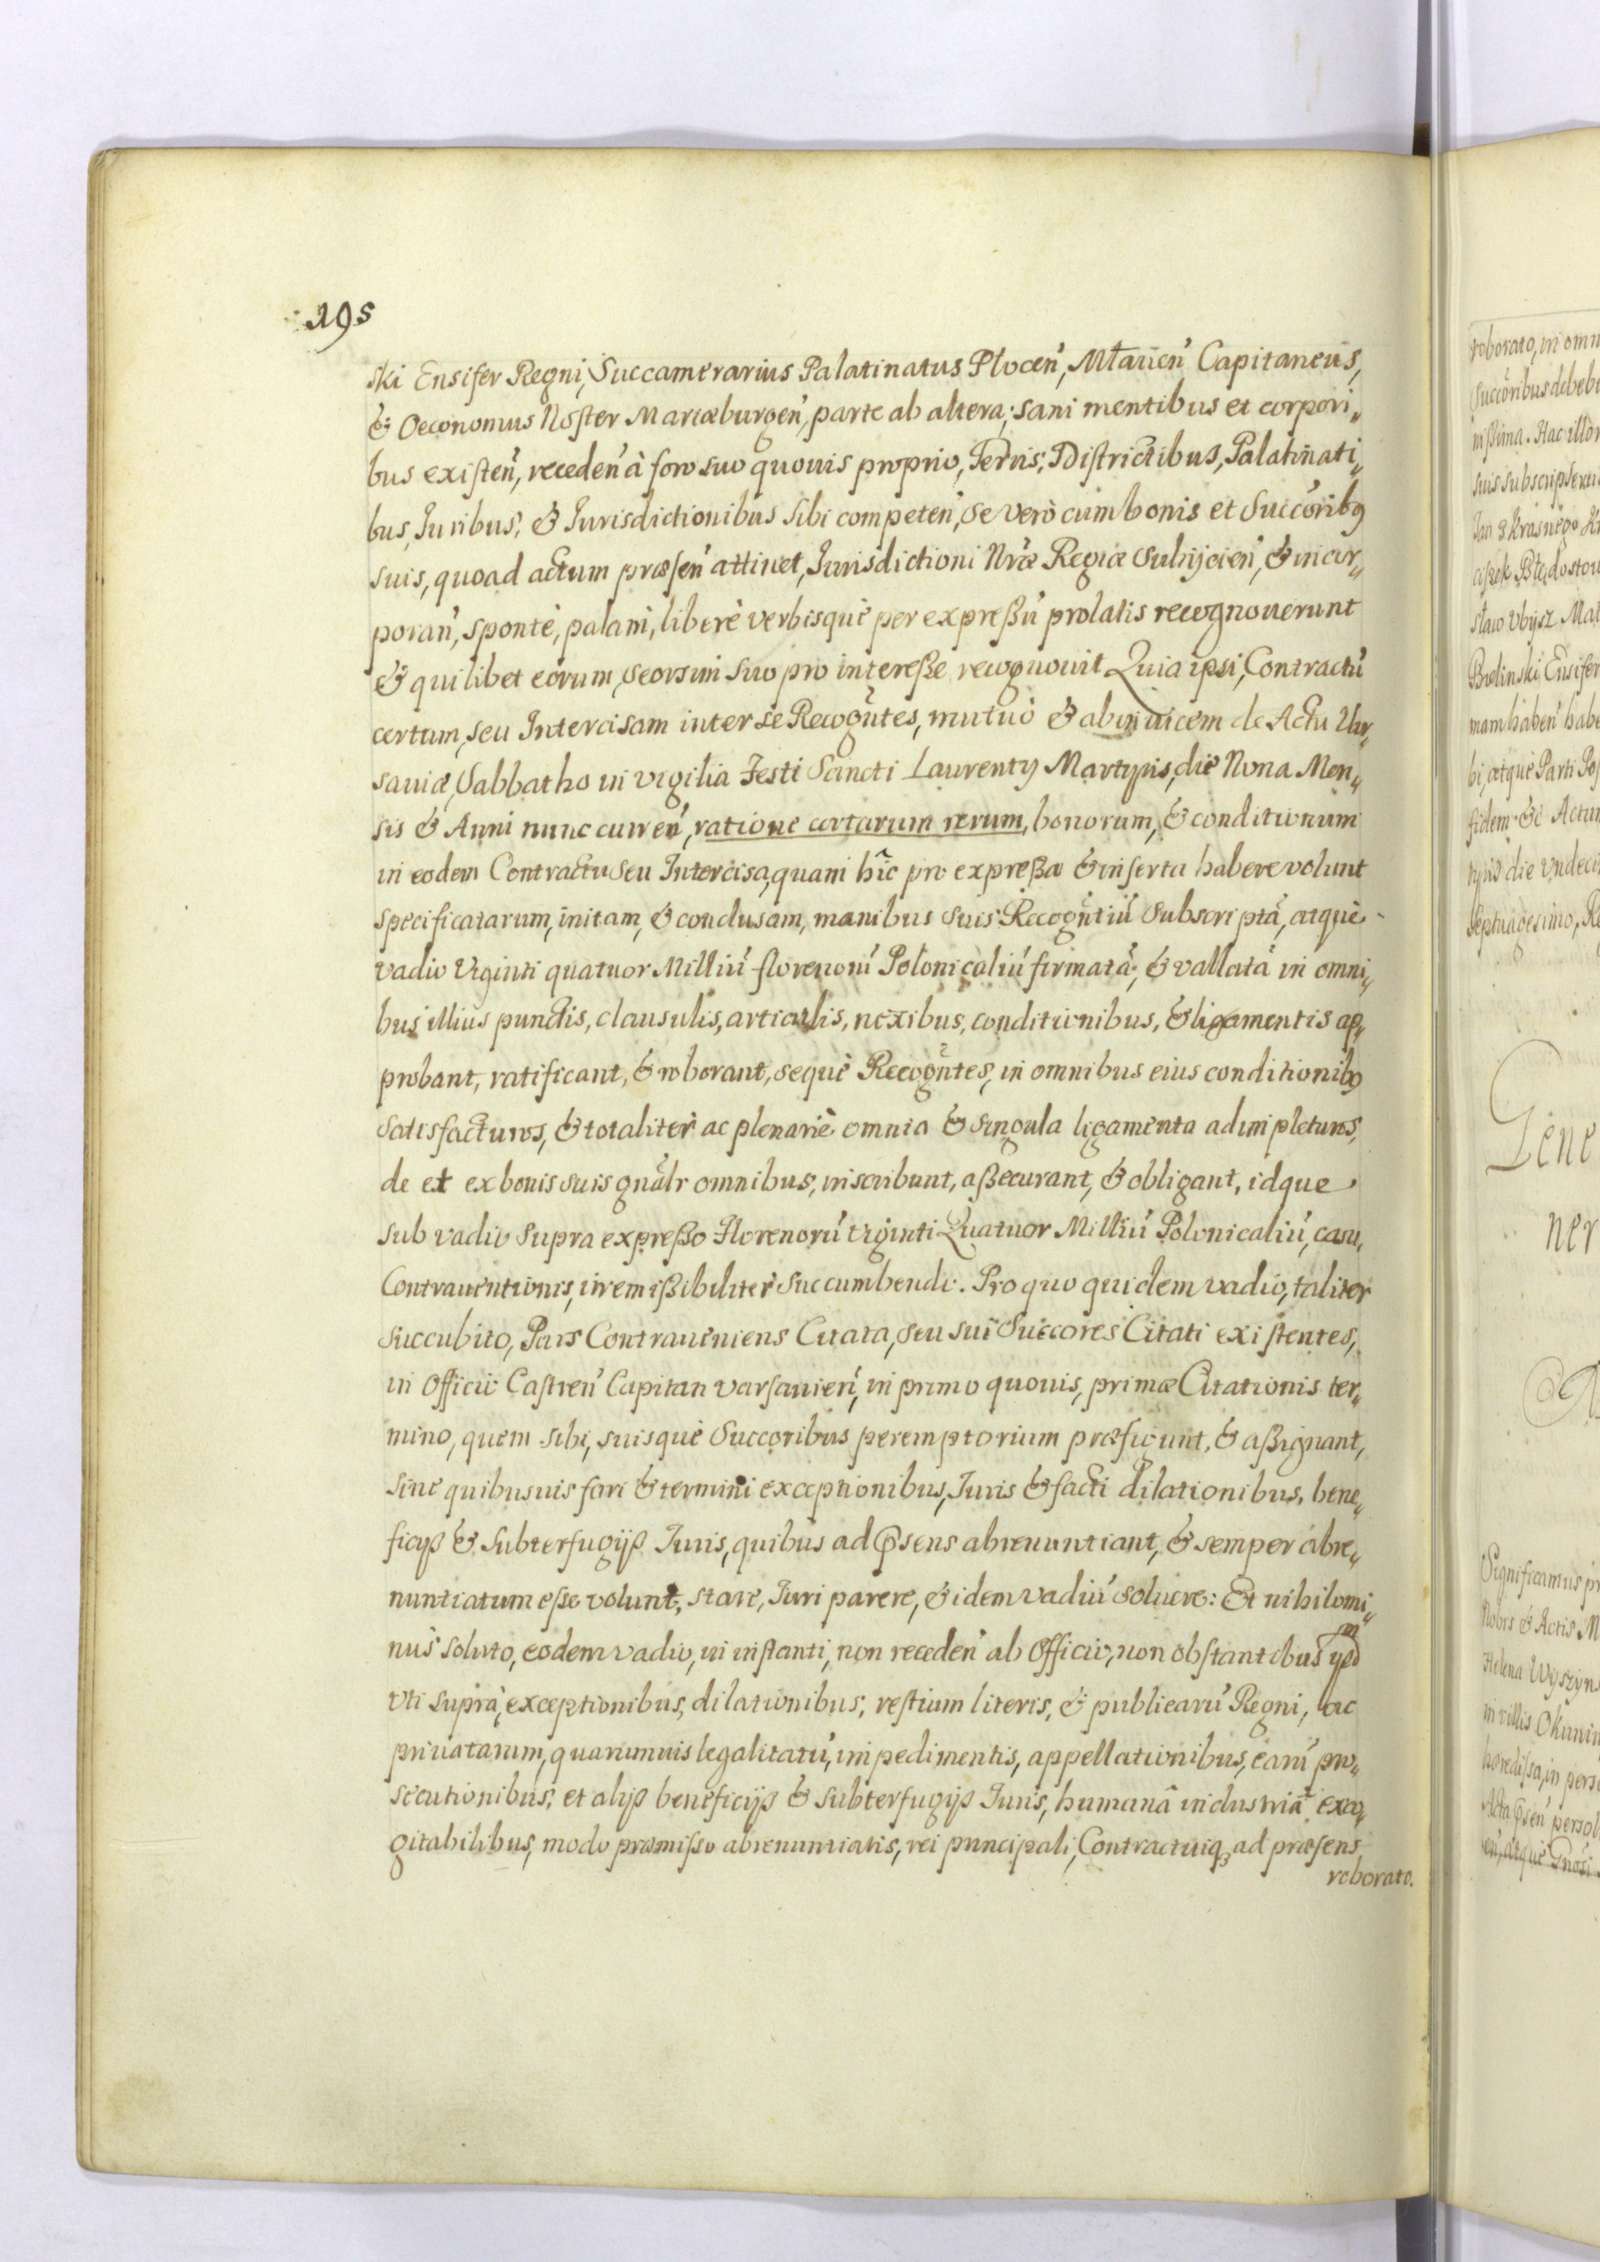 195
ski Ensifer Regni, Succamerarius Palatinatus Plocen̄, Mławen̄ Capitaneus,
& Oeconomus Noster Mariæburgen̄, parte ab altera, sani mentibus et corpori„
bus existen̄, receden̄ à foro suo quouis proprio, Terris, Districtibus, Palatinati„
bus, Iuribus, & Iurisdictionibus sibi competen̄, se verò cum bonis et Succoribꝰ
suis, quoad actum præsen̄ attinet, Iurisdictioni Nræ Regiæ Subijcien̄, & incor„
poran̄, sponte, palam, liberè verbisquè per expreßū prolatis recognouerunt
& quilibet eorum, seorsim suo pro intereße recognouit Quia ipsi, Contractū
certum, seu Intercisam inter se Recogñtes, mutuò & abinuicem de Actu Var„
sauiæ, Sabbatho in vigilia Festi Sancti Laurentij Martyris, die Nona Men„
sis & Anni nunc curren̄, ratione certarum rerum, bonorum, & conditionum
in eodem Contractu seu Intercisa, quam hic pro expreßa & inserta habere volunt
specificatarum, initam, & conclusam, manibus suis Recogñtiū Subscriptā, atquè
vadio Viginti quatuor Milliū florenorū Polonicaliū firmatā, & vallatā in omni„
bus illius punctis, clausulis, articulis, nexibus, conditionibus, & ligamentis ap„
probant, ratificant, & roborant, sequè Recogñtes, in omnibus eius conditionibꝰ
satisfacturos, & totaliter ac plenariè omnia & singula ligamenta adimpleturos,
de et ex bonis suis gnālr omnibus, inscribunt, aßecurant, & obligant, idque
sub vadio supra expreßo Florenorū viginti Quatuor Milliū Polonicaliū, casu,
Contrauentionis, irremißibiliter succumbendo. Pro quo quidem vadio, taliter
succubito, Pars Contraueniens Citata, seu sui Succores Citati existentes,
in Officio Castren̄ Capitan Varsauien̄, in primo quouis, primæ Citationis ter„
mino, quem sibi, suisquè Succoribus peremptorium præfigunt, & aßignant,
sine quibusuis fori & termini exceptionibus, Iuris & facti dilationibus, bene„
ficijs & subterfugijs Iuris, quibus ad pn̄sens abrenuntiant, & semper abre„
nuntiatum esse volunt, stare, Iuri parere, & idem vadiū soluere: Et nihilomi„
nus soluto, eodem vadio, in instanti, non receden̄ ab Officio, non obstantibus
vti suprà, exceptionibus, dilationibus, restium literis, & publicarū Regni, ac
priuatarum, quarumuis legalitatū, impedimentis, appellationibus, earū pro„
secutionibus, et alijs beneficijs & subterfugijs Iuris, humanâ industriâ exco„
gitabilibus, modo præmisso abrenuntiatis, rei principali, Contractuiq̃ ad præsens
roborato.
roborato, in omn
Succoribus debebi
nißima. Hac illor
suis subscripserun
Jan z Krasnego Kr
staw Vbysz Mat
Bielinski Ensifer
mam haben̄ habe
bi, atquè Parti Pos
fidem &c Actum
tyris die vndeci
septuagesimo, Re
Gene
ner
Significamus pr
Nobis & Actis M
Helena Wyszyn
in villis Okunin
hæredissa, in perso
Acta pn̄sen̄ persol